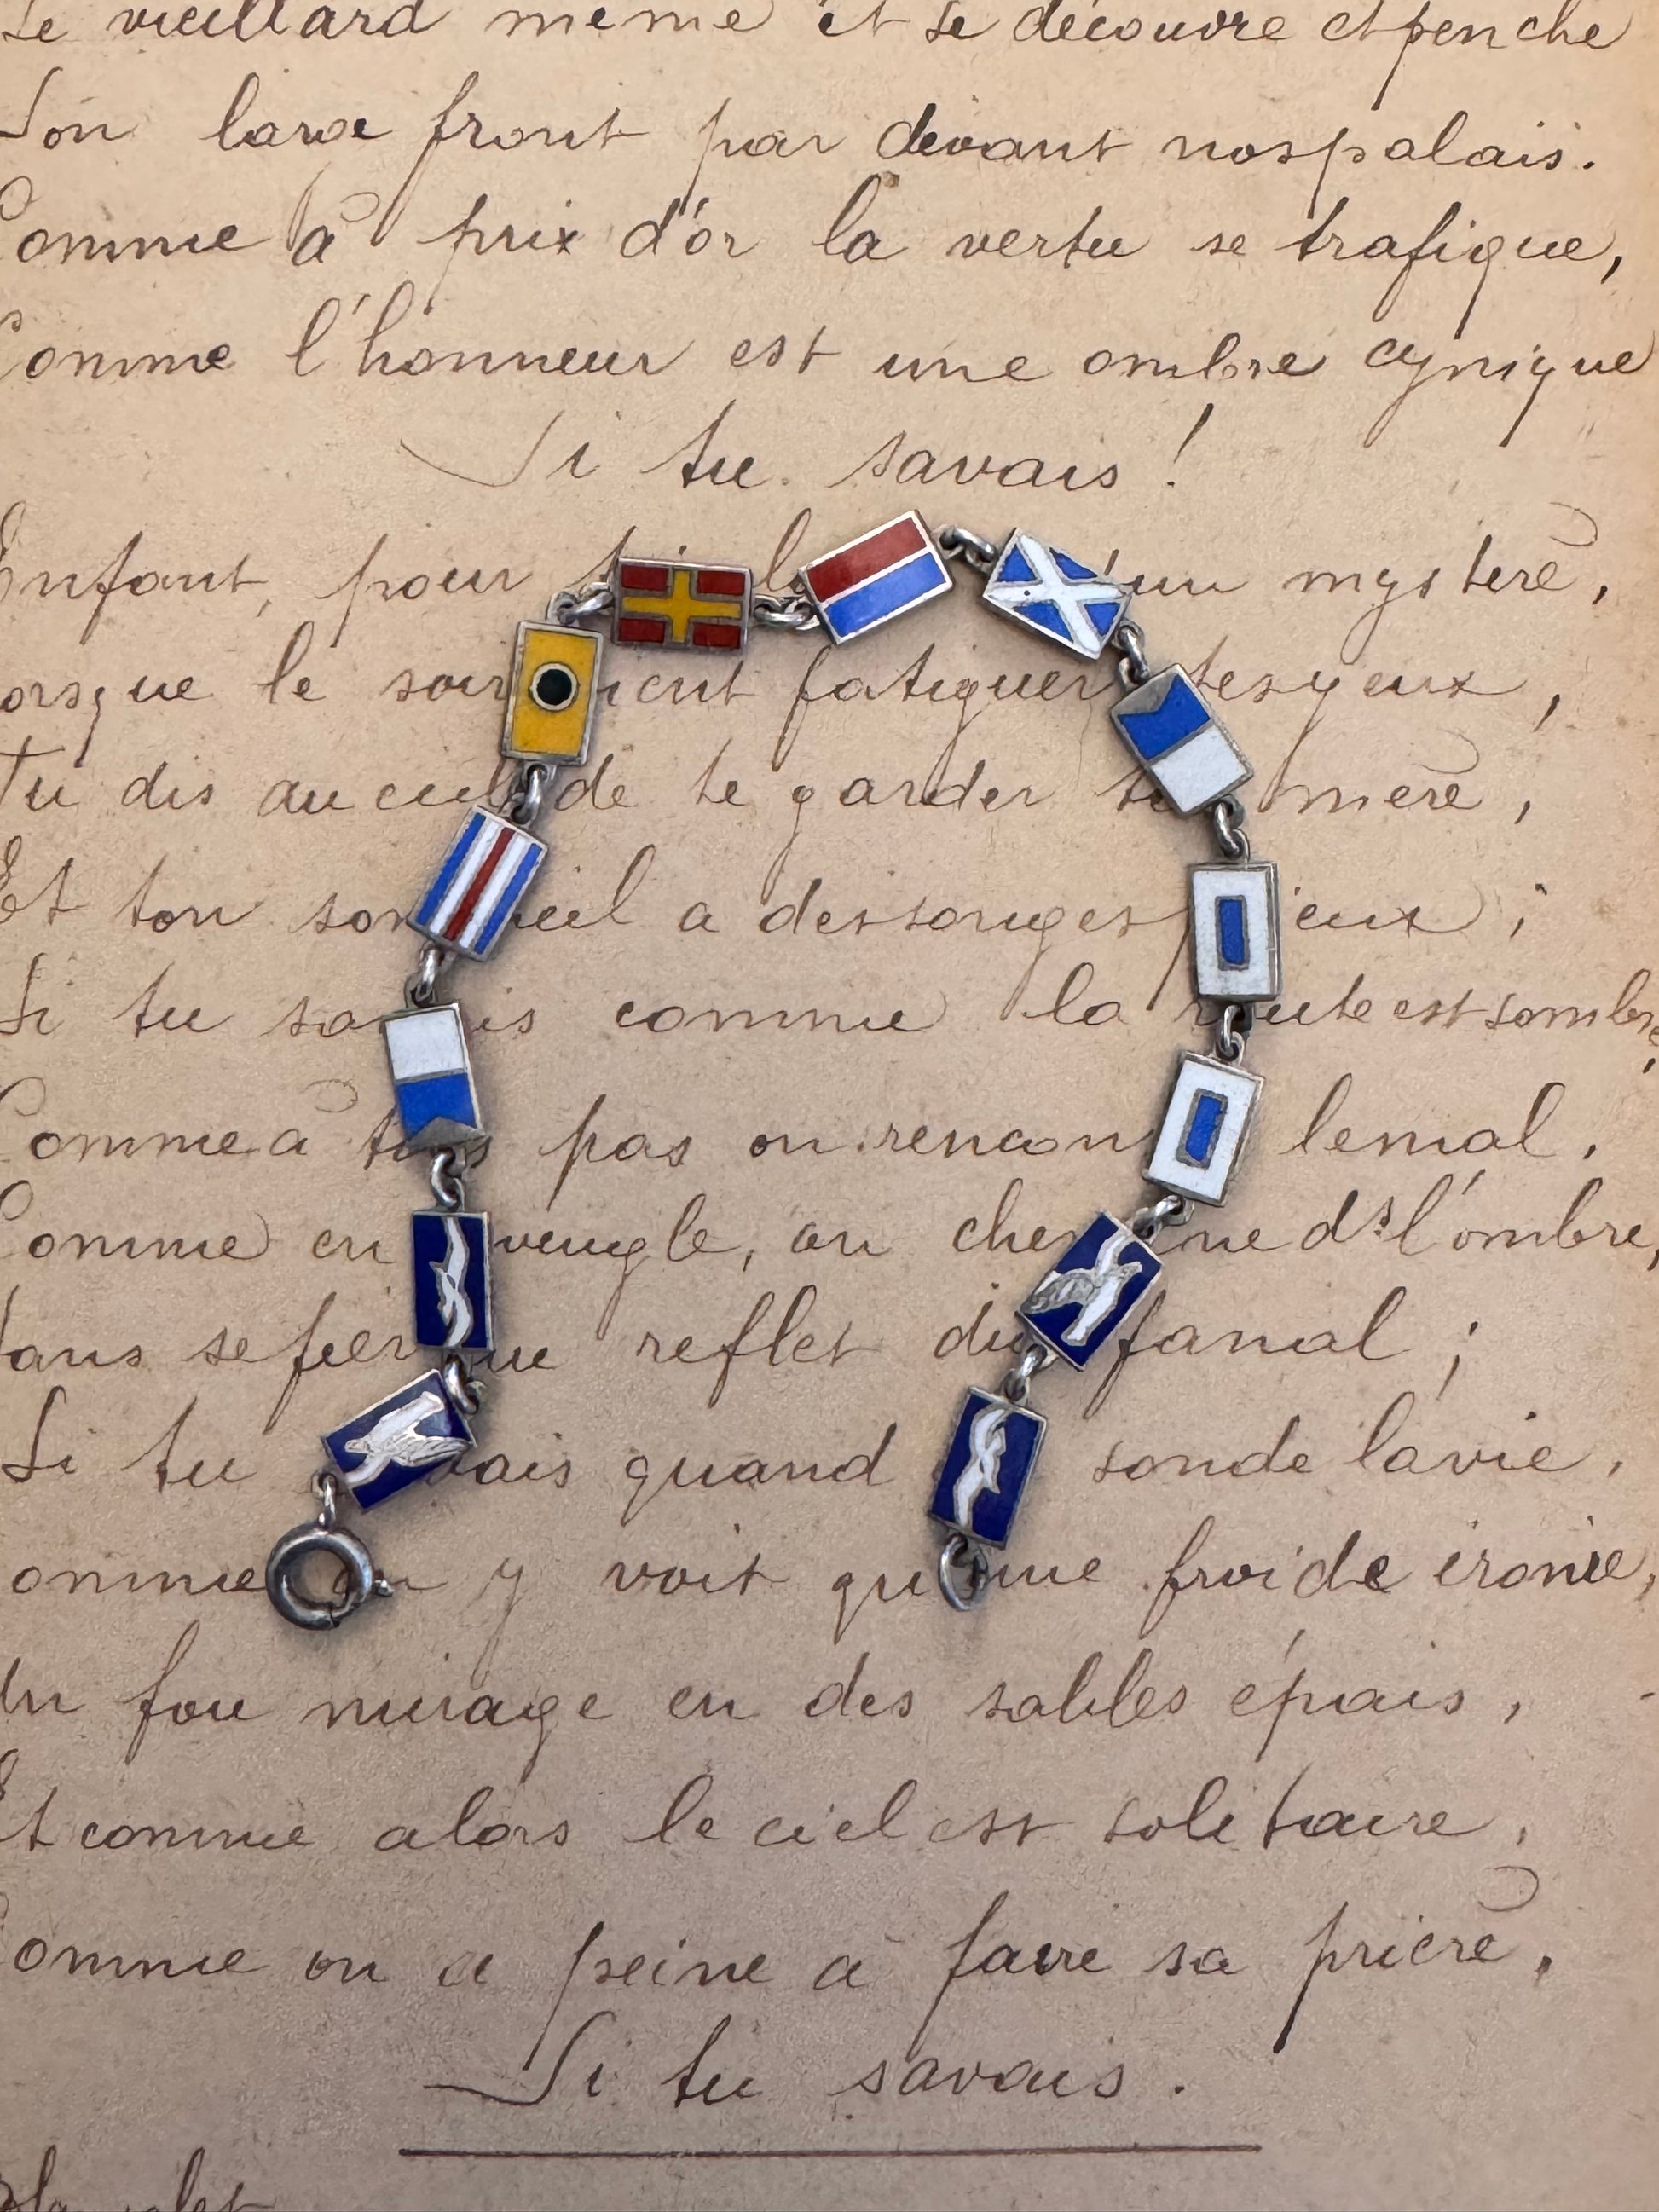 Le vieillard même et se découvre et penche
Son large front par devant nos palais.
Comme à prix d'or la vertu se trafique,
Comme l'honneur est une ombre cynique
Si tu savais !
Enfant, pour un mystère,
Lorsque le soir vient fatiguer tes yeux,
Tu dis au ciel de te garder ta mère,
Et ton sommeil a des songes pieux ;
Si tu savais comme la route est sombre,
Comme à tous pas on rencontre le mal,
Comme en aveugle, on chemine ds l'ombre,
Sans se fier au reflet du fanal ;
Si tu savais quand sonde la vie,
Comme on y voit qu'une froide ironie,
Un fou mirage en des sables épais,
Et comme alors le ciel est solitaire,
Comme on a peine à faire sa prière,
Si tu savais.